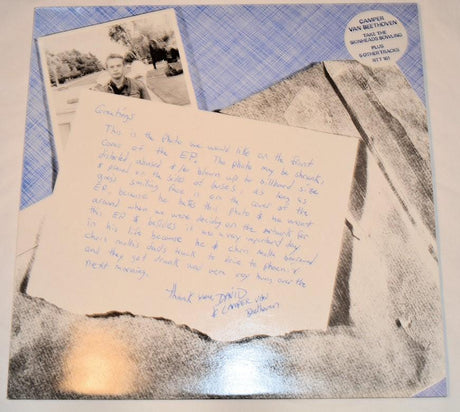 CAMPER
VAN BEETHOVEN
TAKE THE
SKINHEADS BOWLING
PLUS
5 OTHER TRACKS
Greetings
This is the photo we would like on the front
cover of the E.P. The photo may be shrunk,
distorted, abused &/or blown up to billboard size
& placed on the sides of buses, as long as
greg's smiling face is on the cover of the
EP, because he hates this photo & he wasn't
around when we were deciding on the artwork for
this EP & besides it was a very important day
in his life because he & chris molla borrowed
chris molla's dad's truck to drive to phoenix
and they got drunk and were very hung over the
next morning.
Thank you, DAVID
& CAMPER VAN
Beethoven